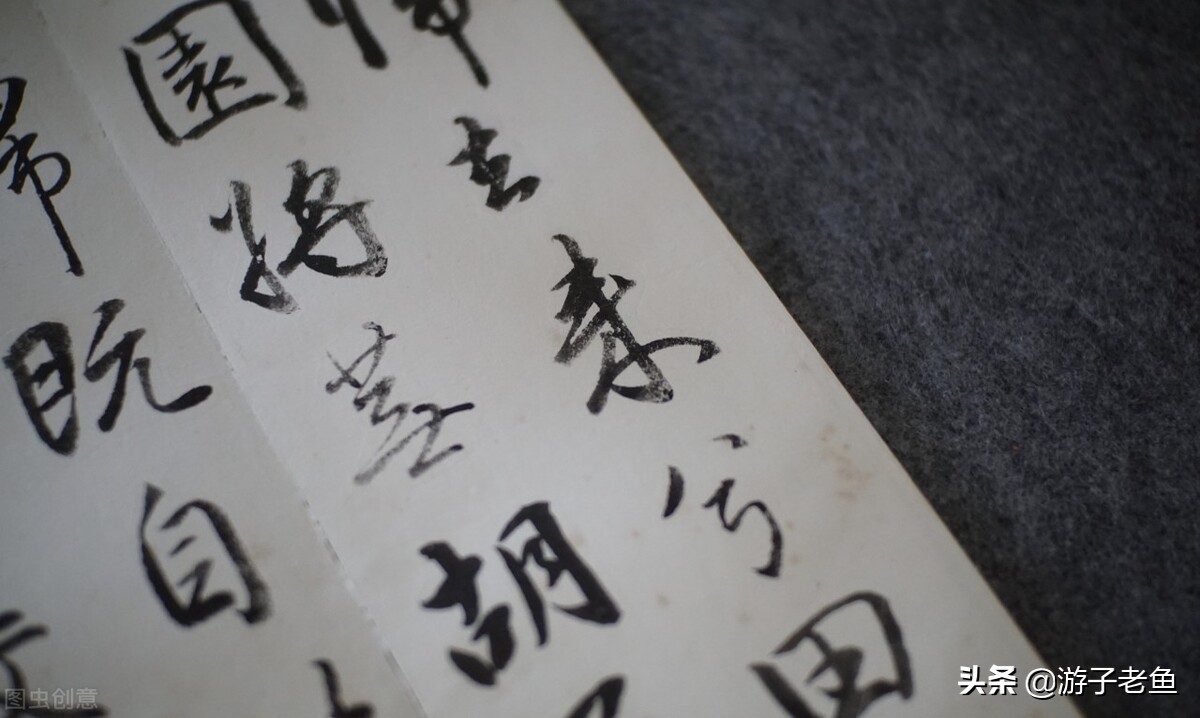 歸去來兮田
園將蕪胡
歸既自
图虫创意
头条 @游子老鱼